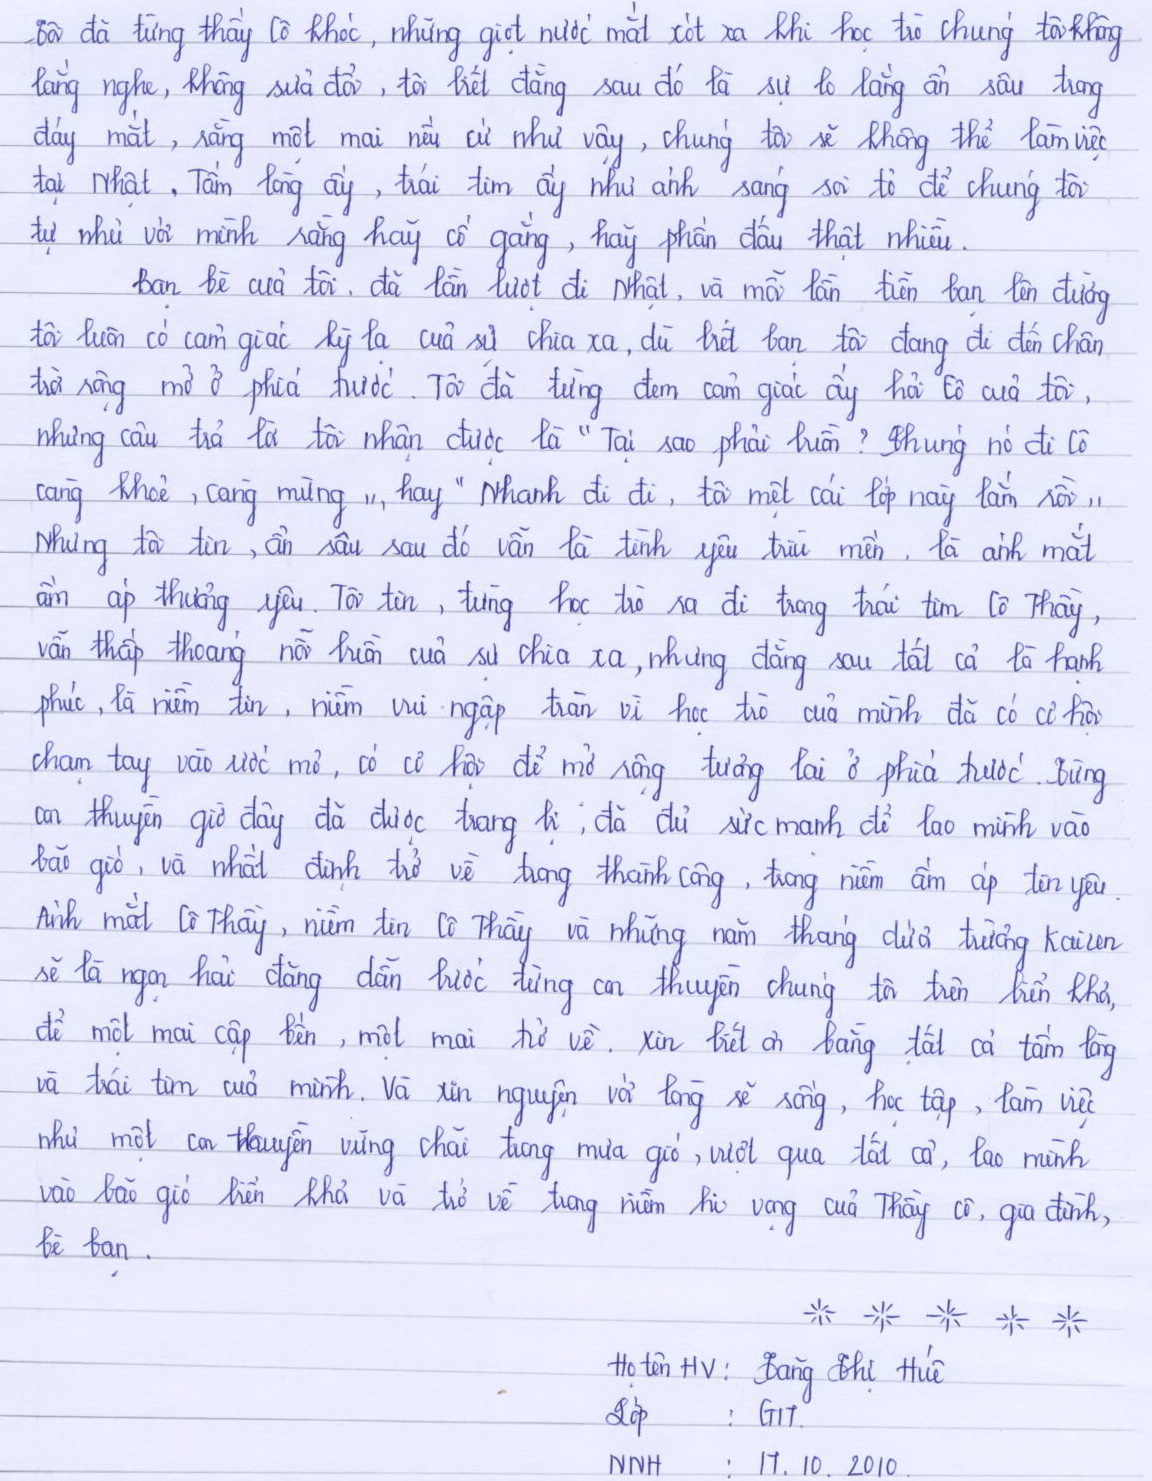 Tôi đã từng thấy Cô khóc, những giọt nước mắt xót xa khi học trò chúng tôi không
lắng nghe, không sửa đổi, tôi biết đằng sau đó là sự lo lắng ẩn sâu trong
đáy mắt, rằng một mai nếu cứ như vậy, chúng tôi sẽ không thể làm việc
tại Nhật. Tấm lòng ấy, trái tim ấy như ánh sáng soi tỏ để chúng tôi
tự nhủ với mình rằng hãy cố gắng, hãy phấn đấu thật nhiều.
Bạn bè của tôi, đã lần lượt đi Nhật, và mỗi lần tiễn bạn lên đường
tôi luôn có cảm giác kỳ lạ của sự chia xa, dù biết bạn tôi đang đi đến chân
trời rộng mở ở phía trước. Tôi đã từng đem cảm giác ấy hỏi Cô của tôi,
nhưng câu trả lời tôi nhận được là "Tại sao phải buồn? Chúng nó đi Cô
càng khoẻ, càng mừng", hay "Nhanh đi đi, tôi mệt cái lớp này lắm rồi"
Nhưng tôi tin, ẩn sâu sau đó vẫn là tình yêu trìu mến, là ánh mắt
ấm áp thương yêu. Tôi tin, từng học trò ra đi trong trái tim Cô Thầy,
vẫn thấp thoáng nỗi buồn của sự chia xa, nhưng đằng sau tất cả là hạnh
phúc, là niềm tin, niềm vui ngập tràn vì học trò của mình đã có cơ hội
chạm tay vào ước mơ, có cơ hội để mở rộng tương lai ở phía trước. Từng
con thuyền giờ đây đã được trang bị, đã đủ sức mạnh để lao mình vào
bão gió, và nhất định trở về trong thành công, trong niềm ấm áp tin yêu.
Ánh mắt Cô Thầy, niềm tin Cô Thầy và những năm tháng dưới trường Kaizen
sẽ là ngọn hải đăng dẫn bước từng con thuyền chúng tôi trên biển khơi,
để một mai cập bến, một mai trở về. Xin biết ơn bằng tất cả tấm lòng
và trái tim của mình. Và xin nguyện với lòng sẽ sống, học tập, làm việc
như một con thuyền vững chãi trong mưa gió, vượt qua tất cả, lao mình
vào bão gió biển khơi và trở về trong niềm hi vọng của Thầy cô, gia đình,
bè bạn.
Họ tên HV: Đặng Thị Huế
Lớp : G17.
NNH : 17. 10. 2010.